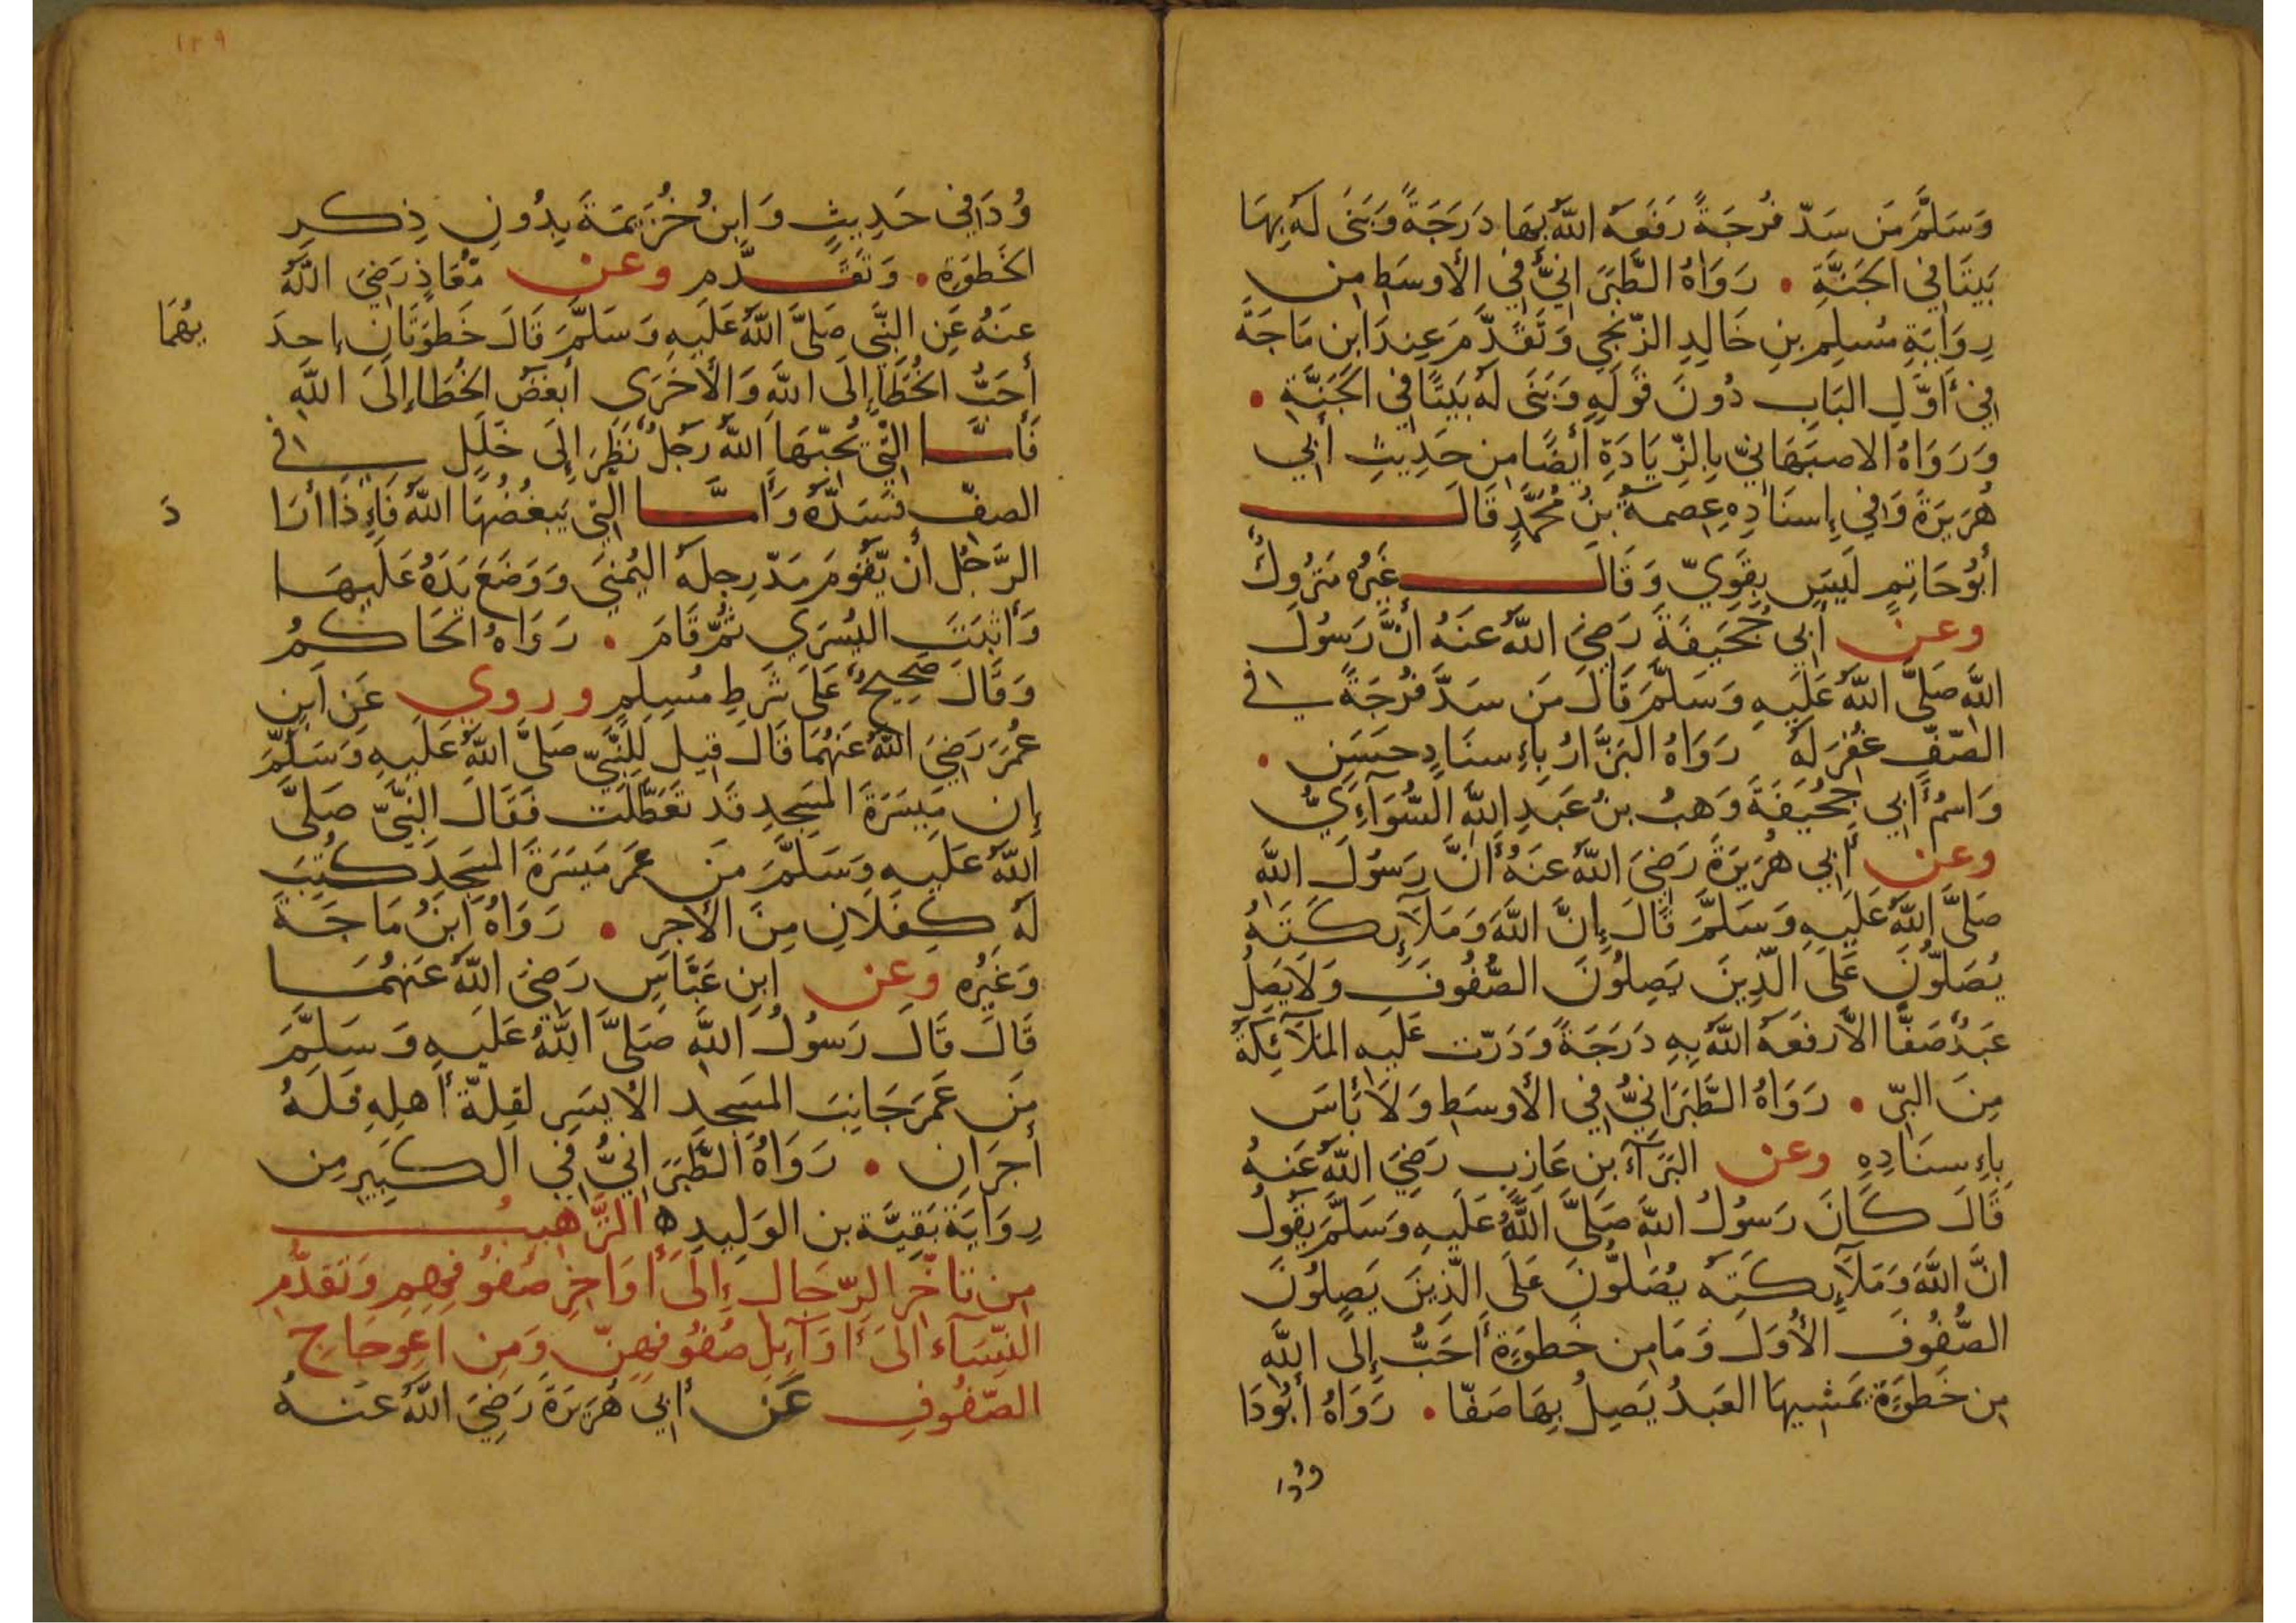 وَسَلَّمَ مَن سَدّ فُرجَةً رَفَعَهُ اللَّهُ بِهَا دَرَجَةً وَبَنَى لَهُ بِهَا
بَيتًا فِي الجَنَّةِ • رَوَاهُ الطَّبَرَانِيُّ فِي الأوسَطِ مِن
رِوَايَةِ مُسلِمِ بنِ خَالِدِ الزّنجِي وَتَقَدَّمَ عِندَ ابنِ مَاجَةَ
فِي أوَّلِ البَابِ دُونَ قَولِهِ وَبَنَى لَهُ بَيتًا فِي الجَنَّةِ •
وَرَوَاهُ الاصبَهَانِيّ بِالزِّيَادَةِ أيضًا مِن حَدِيثِ أبِي
هُرَيرَةَ وَفِي إِسنَادِهِ عِصمَةُ بنُ مُحَمَّدٍ قَالَ
أبُو حَاتِمٍ لَيسَ بِقَوِيّ وَقَالَ غَيرُهُ مَترُوكٌ
وعن أبِي جُحَيفَةَ رَضِيَ اللَّهُ عَنهُ أنَّ رَسُولَ
اللَّهِ صَلَّى اللَّهُ عَلَيهِ وَسَلَّمَ قَالَ مَن سَدَّ فُرجَةً فِي
الصّفِّ غُفِرَ لَهُ رَوَاهُ البَزَّارُ بِإِسنَادٍ حَسَنٍ •
وَاسمُ أبِي جُحَيفَةَ وَهبُ بنُ عَبدِ اللَّهِ السُّوَآءِيُّ
وعن أبِي هُرَيرَةَ رَضِيَ اللَّهُ عَنهُ أنَّ رَسُولَ اللَّهِ
صَلَّى اللَّهُ عَلَيهِ وَسَلَّمَ قَالَ إِنَّ اللَّهَ وَمَلَآئِكَتَهُ
يُصَلُّونَ عَلَى الّذِينَ يَصِلُونَ الصُّفُوفَ وَلَا يَصِلُ
عَبدٌ صَفًّا الاَّ رَفَعَهُ اللَّهُ بِهِ دَرَجَةً وَدَرّت عَلَيهِ المَلَآئِكَةُ
مِنَ البِرّ • رَوَاهُ الطَّبَرَانِيُّ فِي الأوسَطِ وَلَا بَأسَ
بِإِسنَادِهِ وعن البَرَآءِ بنِ عَازِبٍ رَضِيَ اللَّهُ عَنهُ
قَالَ كَانَ رَسُولُ اللَّهِ صَلَّى اللَّهُ عَلَيهِ وَسَلَّمَ يَقُولُ
انَّ اللَّهَ وَمَلَآئِكَتَهُ يُصَلُّونَ عَلَى الّذِينَ يَصِلُونَ
الصُّفُوفَ الأُوَلَ وَمَا مِن خَطوَةٍ أحَبُّ إِلَى اللَّهِ
مِن خَطوَةٍ يَمشِيهَا العَبدُ يَصِلُ بِهَا صَفّا • رَوَاهُ أبُو دَا
وُدَ
١٢٩
وُدَ فِي حَدِيثٍ وَابنُ خُزَيمَةَ بِدُونِ ذِكرِ
الخَطوَةِ • وَتَقَدَّم وعن مُعَاذٍ رَضِيَ اللَّهُ
عَنهُ عَنِ النَّبِيّ صَلَّى اللَّهُ عَلَيهِ وَسَلَّمَ قَالَ خَطوَتَانِ إِحدَ
يهُمَا
أحَبُّ الخُطَا إِلَى اللَّهِ وَالأُخرَى أبغَضُ الخُطَا إِلَى اللَّهِ
فَأمَّا الّتِي يُحِبّهَا اللَّهُ رَجُلٌ نَظَرَ إِلَى خَلَلٍ فِي
الصفّ فَسَدّهُ وَأمَّا الّتِي يَبغُضُهَا اللَّهُ فَإِذَا أرَا
دَ
الرَّجُلُ أن يّقُومَ مَدّ رِجلَهُ اليُمنَى وَوَضَعَ يَدَهُ عَلَيهَا
وَأثبَتَ اليُسرَى ثُمّ قَامَ • رَوَاهُ الحَاكمُ
وَقَالَ صَحِيحٌ عَلَى شَرطِ مُسلِمٍ وروي عَنِ ابنِ
عُمَرَ رَضِيَ اللَّهُ عَنهُمَا قَالَ قِيلَ لِلنَّبِيّ صَلَّى اللَّهُ عَلَيهِ وَسَلَّمَ
إِن مَيسَرَةَ المَسجِدِ قَد تَعَطّلَت فَقَالَ النَّبِيّ صَلَّى
اللَّهُ عَلَيهِ وَسَلَّمَ مَن عَمَرَ مَيسَرَةَ المَسجِدِ كُتِبَ
لَهُ كِفلَانِ مِنَ الأجرِ • رَوَاهُ ابنُ مَاجَةَ
وَغَيرُه وعن ابنِ عَبَّاسٍ رَضِيَ اللَّهُ عَنهُمَا
قَالَ قَالَ رَسُولُ اللَّهِ صَلَّى اللَّهُ عَلَيهِ وَسَلَّمَ
مَن عَمَرَ جَانِبَ المَسجِدِ الأيسَرِ لِقِلّةِ أهلِهِ فَلَهُ
أجرَانِ • رَوَاهُ الطَّبَرَانِيُّ فِي الكَبِيرِ مِن
رِوَايَةِ بَقِيَّة بن الوَلِيدِ ه التَّرهِيبُ
مِن تَأخّرِ الرِّجَالِ إِلَى أوَاخِرِ صُفُوفِهِم وَتَقَدُّمِ
النِّسَآءِ الَى أوَآئِلِ صُفُوفِهِنّ وَمِنِ اعِوجَاجِ
الصّفُوفِ عَن أبِي هُرَيرَةَ رَضِيَ اللَّهُ عَنهُ